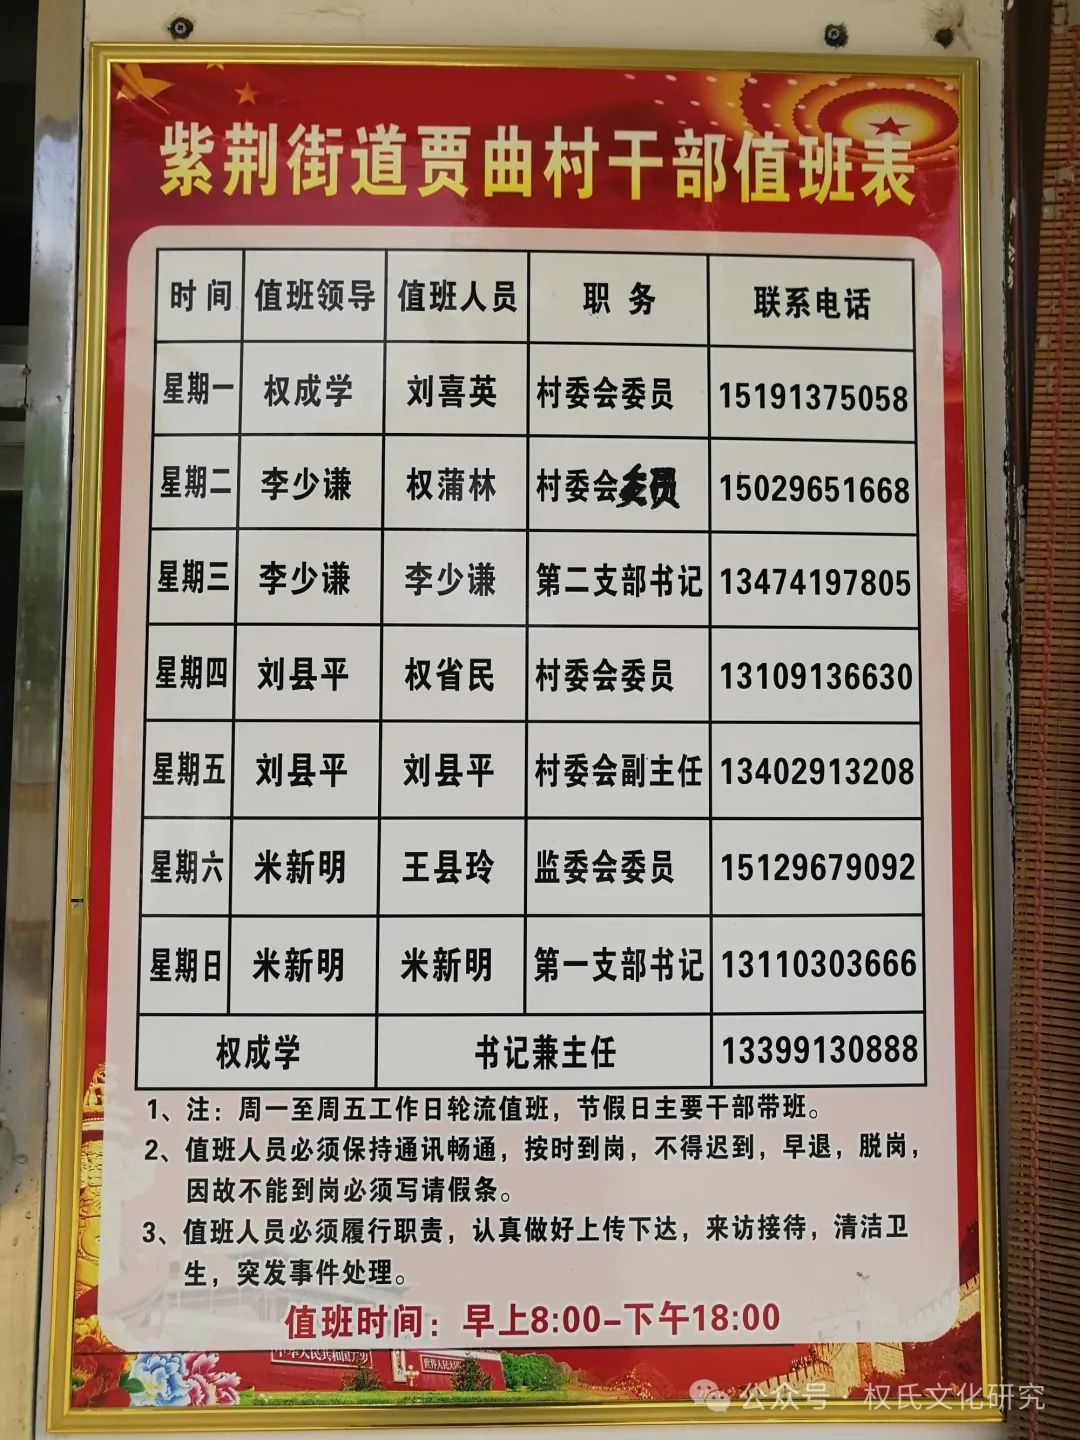 紫荆街道贾曲村干部值班表
时间 值班领导 值班人员 职务 联系电话
星期一 权成学 刘喜英 村委会委员 15191375058
星期二 李少谦 权蒲林 村委会委员 15029651668
星期三 李少谦 李少谦 第二支部书记 13474197805
星期四 刘县平 权省民 村委会委员 13109136630
星期五 刘县平 刘县平 村委会副主任 13402913208
星期六 米新明 王县玲 监委会委员 15129679092
星期日 米新明 米新明 第一支部书记 13110303666
权成学 书记兼主任 13399130888
1、注：周一至周五工作日轮流值班，节假日主要干部带班。
2、值班人员必须保持通讯畅通，按时到岗，不得迟到，早退，脱岗，
因故不能到岗必须写请假条。
3、值班人员必须履行职责，认真做好上传下达，来访接待，清洁卫
生，突发事件处理。
值班时间：早上8:00-下午18:00
公众号·权氏文化研究